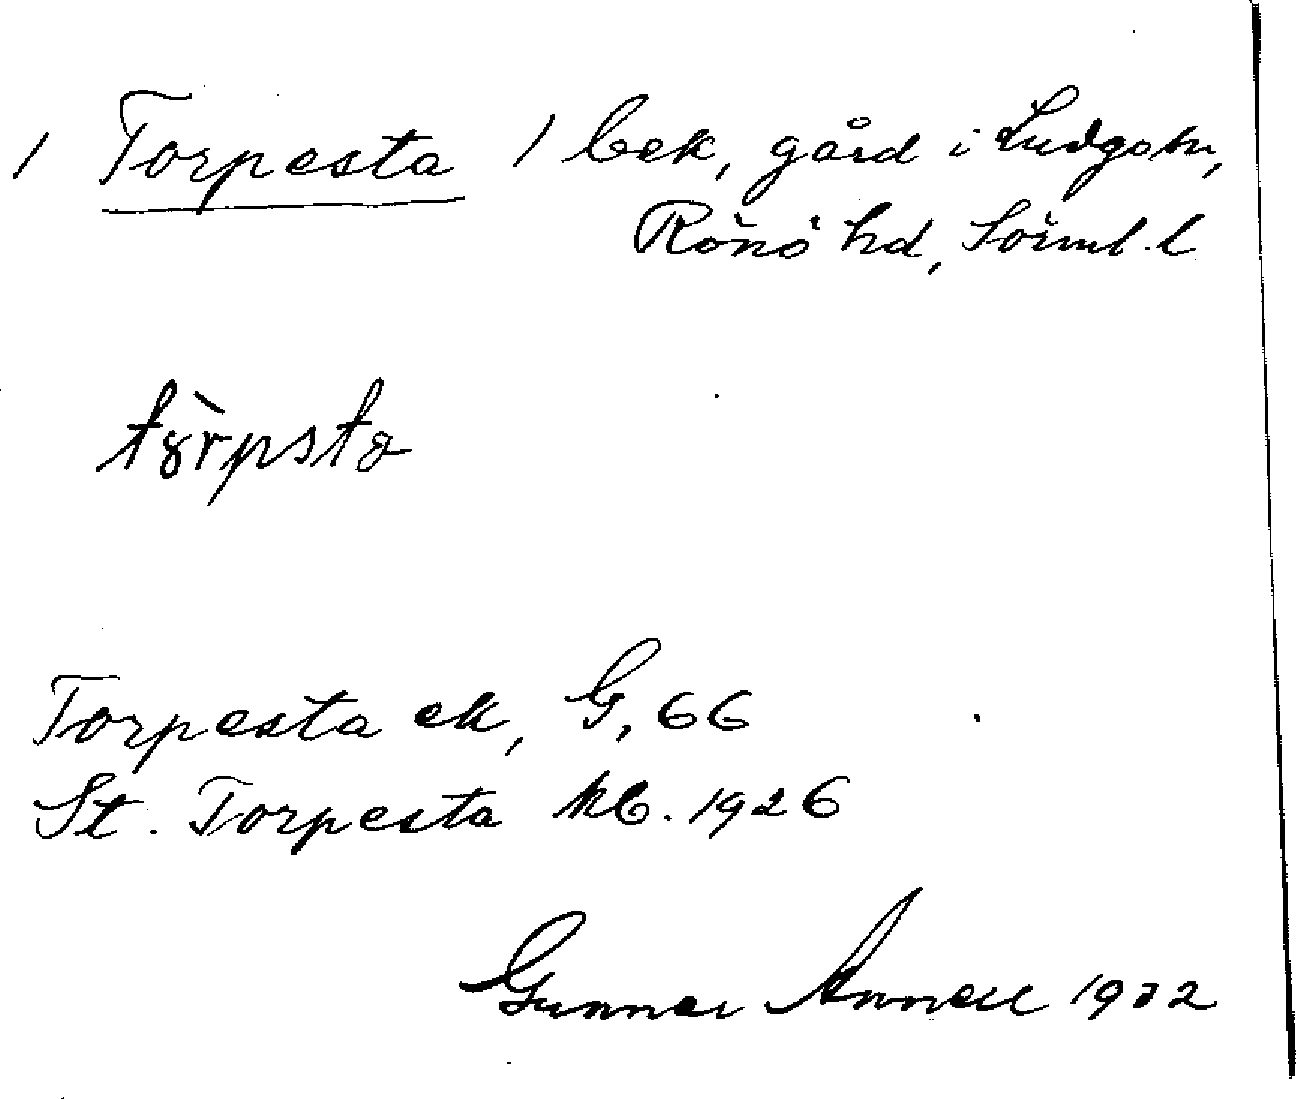 / Torpesta / bek, gård i Ludgohn,
Rönö hd, Söuml. l
Torpesta ek, G, 66
St. Torpesta kb. 1926
Gunnar Annell 1932